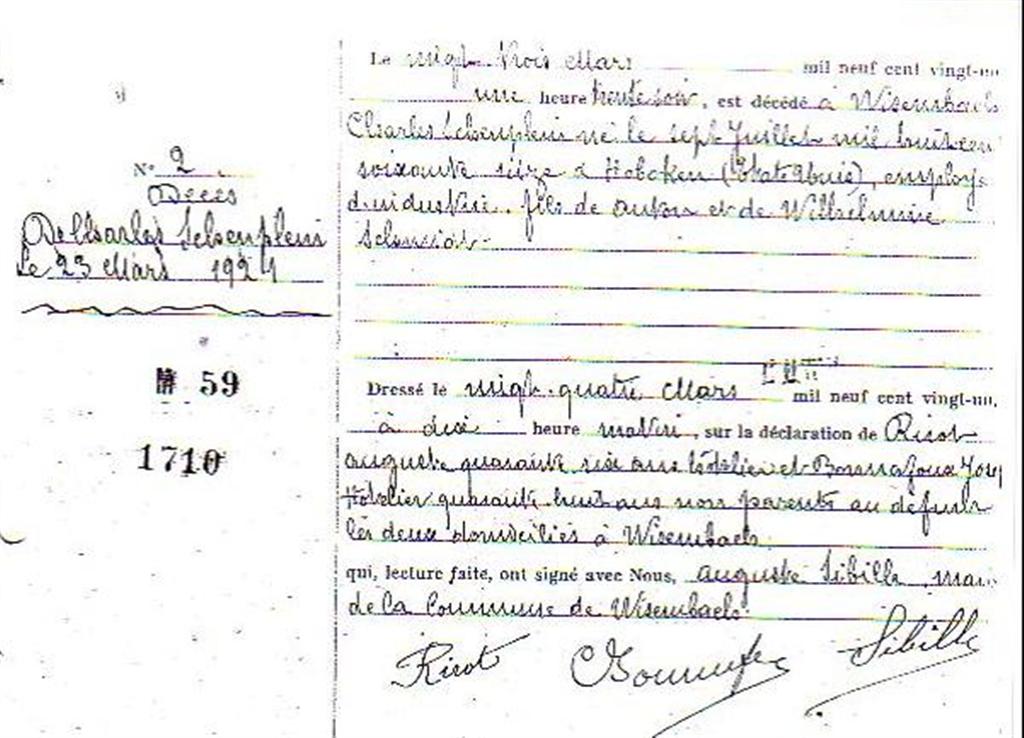 Nº 2
Décès
De Charles Schenplein
Le 23 Mars 1921
59
1710
Le vingt-trois Mars mil neuf cent vingt-un
une heure trente soir, est décédé à Wisembach
Charles Schenplein né le sept Juillet mil huit cent
soixante seize à Hoboken (Etats Unis), employé
d'industrie, fils de Anton et de Wilhelmine
Schmidt.
Dressé le vingt-quatre Mars mil neuf cent vingt-un,
à dix heure matin, sur la déclaration de Ricot
Auguste quarante six ans hôtelier et Bonnafoux Josep
Hôtelier quarante huit ans non parents au défunt
les deux domiciliés à Wisembach
qui, lecture faite, ont signé avec Nous, Auguste Sibille, mai
de La Commune de Wisembach
Ricot Sibille